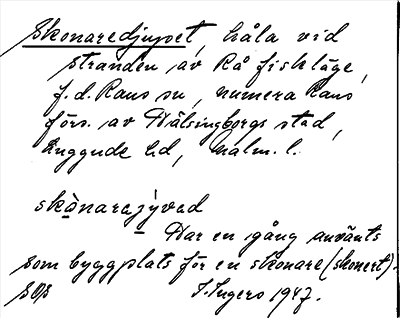 Skonaredjupet, håla vid
stranden av Rå fiskläge,
f.d. Raus sn, numera Raus
förs. av Hälsingborgs stad,
Luggude hd, Malm. l.
skònarejývad
Har en gång använts
som byggplats för en skonare (skonert).
SOS I. Ingers 1947.